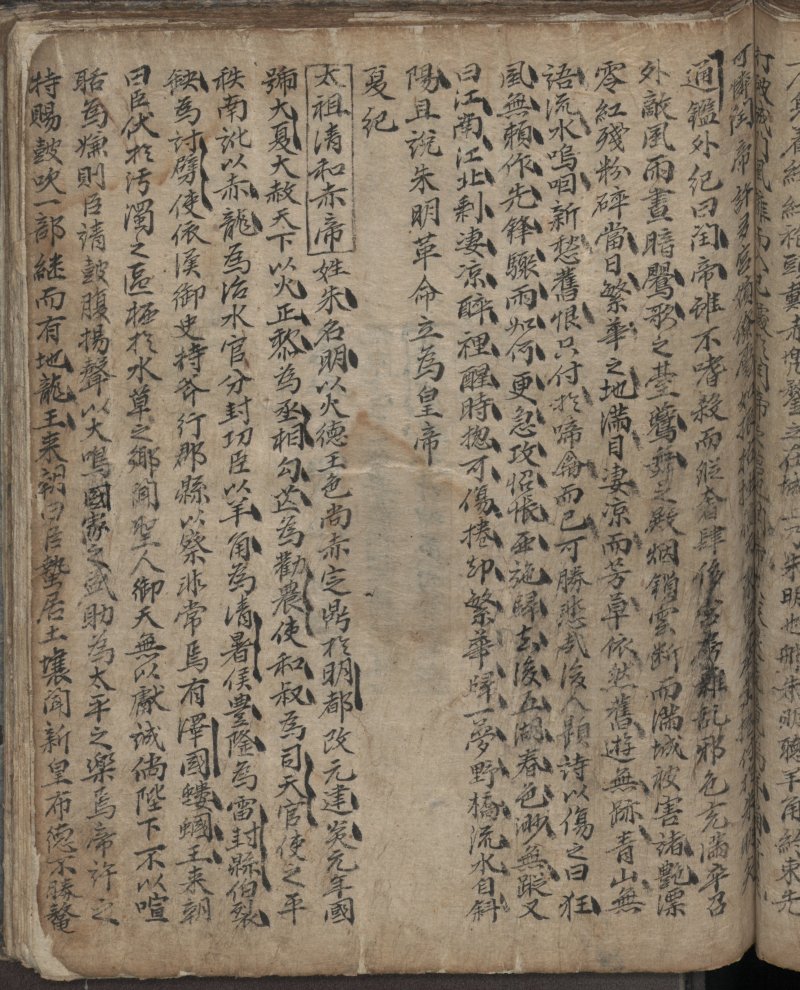 通鑑外紀曰閏帝雖不嗜殺而縱奢肆侈宮房雜亂邪色充滿卒召
外敵風雨晝暗鸎歌之臺鶯舞之殿烟鎖雲斷而滿城被害諸艷漂
零紅殘粉碎當日繁華之地滿目凄凉而芳草依然舊遊無跡青山無
語流水嗚咽新愁舊恨只付於啼禽而已可勝悲哉後人題詩以傷之曰狂
風無賴作先鋒驟雨如何更忽攻怊悵亞旄歸去後五湖春色渺無蹤又
曰江南江北剩凄凉醉裡醒時摠可傷捲却繁華歸一夢野橋流水自斜
陽且說朱明革命立爲皇帝
夏紀
太祖淸和赤帝姓朱名明以火德王色尙赤定鼎於明都改元建炎元年國
號大夏大赦天下以火正黎爲丞相勾芒爲勸農使和叔爲司天官使之平
秩南訛以赤龍爲治水官分封功臣以羊角爲淸暑侯豊隆爲雷封縣伯裂
缺爲討孼使依漢御史持斧行郡縣以察非常焉有澤國螻蟈王来朝
曰臣伏於汚濁之區極於水草之鄕聞聖人御天無以獻誠倘陛下不以喧
聒爲嫌則臣請鼓腹揚聲以大鳴國家之盛助爲太平之樂焉帝許之
特賜鼓吹一部継而有地龍王来朝曰臣蟄居土壤聞新皇布德不勝鰲